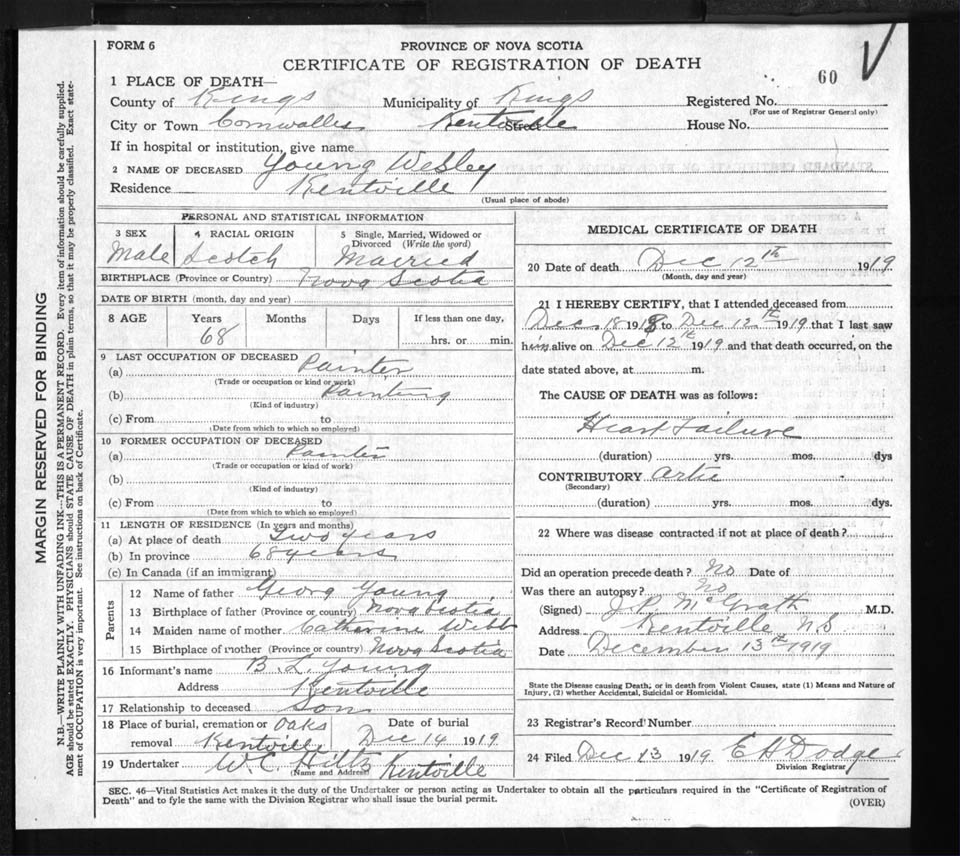 FORM 6
PROVINCE OF NOVA SCOTIA
CERTIFICATE OF REGISTRATION OF DEATH
60
1 PLACE OF DEATH—
County of Kings Municipality of Kings Registered No.
(For use of Registrar General only)
City or Town Cornwallis Kentville Street House No.
If in hospital or institution, give name
2 NAME OF DECEASED Young Wesley
Residence Kentville
(Usual place of abode)
PERSONAL AND STATISTICAL INFORMATION
3 SEX 4 RACIAL ORIGIN 5 Single, Married, Widowed or Divorced (Write the word)
Male Scotch Married
BIRTHPLACE (Province or Country) Nova Scotia
DATE OF BIRTH (month, day and year)
8 AGE Years Months Days If less than one day,
68 hrs. or min.
9 LAST OCCUPATION OF DECEASED
(a) Painter
(Trade or occupation or kind of work)
(b) Painting
(Kind of industry)
(c) From to
(Date from which to which so employed)
10 FORMER OCCUPATION OF DECEASED
(a) Painter
(Trade or occupation or kind of work)
(b)
(Kind of industry)
(c) From to
(Date from which to which so employed)
11 LENGTH OF RESIDENCE (In years and months)
(a) At place of death Two years
(b) In province 68 years
(c) In Canada (if an immigrant)
Parents
12 Name of father Georg Young
13 Birthplace of father (Province or country) Nova Scotia
14 Maiden name of mother Catherine Webb
15 Birthplace of mother (Province or country) Nova Scotia
16 Informant's name B. L. Young
Address Kentville
17 Relationship to deceased Son
18 Place of burial, cremation or Oaks Date of burial
removal Kentville Dec 14 1919
19 Undertaker W. C. Hiltz Kentville
(Name and Address)
MEDICAL CERTIFICATE OF DEATH
20 Date of death Dec 12th 1919
(Month, day and year)
21 I HEREBY CERTIFY, that I attended deceased from
Dec 18 1918 to Dec 12th 1919 that I last saw
him alive on Dec 12th 1919 and that death occurred, on the
date stated above, at m.
The CAUSE OF DEATH was as follows:
Heart Failure
(duration) yrs. mos. dys
CONTRIBUTORY
(Secondary)
(duration) yrs. mos. dys.
22 Where was disease contracted if not at place of death?
Did an operation precede death? No Date of
Was there an autopsy? No
(Signed) J. P. McGrath M.D.
Address Kentville NS
Date December 13th 1919
State the Disease causing Death; or in death from Violent Causes, state (1) Means and Nature of
Injury, (2) whether Accidental, Suicidal or Homicidal.
23 Registrar's Record Number
24 Filed Dec 13 1919 E H Dodge
Division Registrar
SEC. 46—Vital Statistics Act makes it the duty of the Undertaker or person acting as Undertaker to obtain all the particulars required in the "Certificate of Registration of
Death" and to fyle the same with the Division Registrar who shall issue the burial permit.
(OVER)
MARGIN RESERVED FOR BINDING
N.B.—WRITE PLAINLY WITH UNFADING INK—THIS IS A PERMANENT RECORD. Every item of information should be carefully supplied.
AGE should be stated EXACTLY. PHYSICIANS should STATE CAUSE OF DEATH in plain terms, so that it may be properly classified. Exact state-
ment of OCCUPATION is very important. See instructions on back of Certificate.